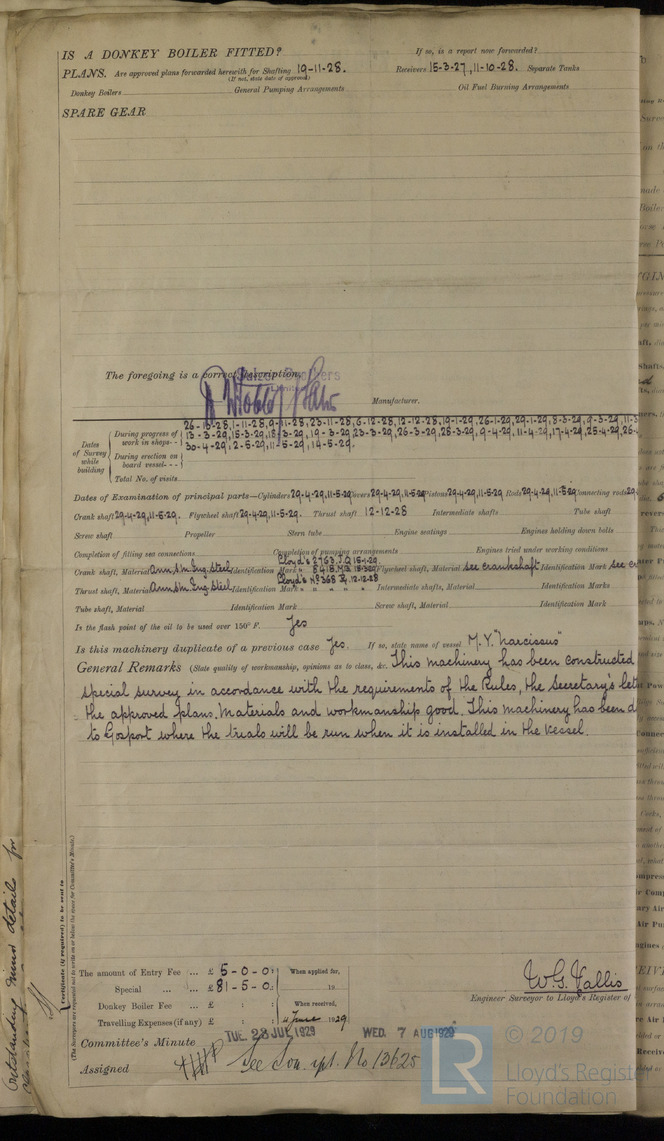 IS A DONKEY BOILER FITTED? If so, is a report now forwarded?
PLANS. Are approved plans forwarded herewith for Shafting 19-11-28. Receivers 15-3-27, 11-10-28. Separate Tanks
(If not, state date of approval)
Donkey Boilers General Pumping Arrangements Oil Fuel Burning Arrangements
SPARE GEAR
The foregoing is a correct description,
Manufacturer.
Dates of Survey while building
During progress of work in shops-- 26-10-28, 1-11-28, 9-11-28, 23-11-28, 6-12-28, 12-12-28, 19-1-29, 26-1-29, 29-1-29, 8-3-29, 9-3-29, 11-3
13-3-29, 15-3-29, 18-3-29, 19-3-29, 23-3-29, 26-3-29, 28-3-29, 9-4-29, 11-4-29, 17-4-29, 25-4-29, 26-
During erection on board vessel--- 30-4-29, 2-5-29, 11-5-29, 14-5-29.
Total No. of visits
Dates of Examination of principal parts—Cylinders 29-4-29, 11-5-29 Covers 29-4-29, 11-5-29 Pistons 29-4-29, 11-5-29 Rods 29-4-29, 11-5-29 Connecting rods 29-
Crank shaft 29-4-29, 11-5-29. Flywheel shaft 29-4-29, 11-5-29. Thrust shaft 12-12-28 Intermediate shafts Tube shaft
Screw shaft Propeller Stern tube Engine seatings Engines holding down bolts
Completion of fitting sea connections Completion of pumping arrangements Engines tried under working conditions
Crank shaft, Material S.M. Ing. Steel Identification Mark Lloyd's 2763 J.Q 15-1-29 Flywheel shaft, Material See crankshaft Identification Mark See
Thrust shaft, Material S.M. Ing. Steel Identification Mark Lloyd's No 368 12-12-28 Intermediate shafts, Material Identification Marks
Tube shaft, Material Identification Mark Screw shaft, Material Identification Mark
Is the flash point of the oil to be used over 150° F. Yes
Is this machinery duplicate of a previous case Yes. If so, state name of vessel M.Y. "Narcissus"
General Remarks (State quality of workmanship, opinions as to class, &c. This machinery has been constructed
special survey in accordance with the requirements of the Rules, the Secretary's let
the approved plans. Materials and workmanship good. This machinery has been d
to Gosport where the trials will be run when it is installed in the vessel.
Outstanding minor details for
Certificate (if required) to be sent to
(The Surveyors are requested not to write on or below the space for Committee's Minute.)
The amount of Entry Fee ... £ 5-0-0: When applied for,
Special ... ... £ 81-5-0: 19
Donkey Boiler Fee ... £ : : When received,
Travelling Expenses (if any) £ : : 4 June 1929
W.G. Vallis
Engineer Surveyor to Lloyd's Register of
Committee's Minute TUE. 23 JUL 1929 WED. 7 AUG 1929
Assigned See Lon. rpt. No 13625
LR
© 2019
Lloyd's Register
Foundation